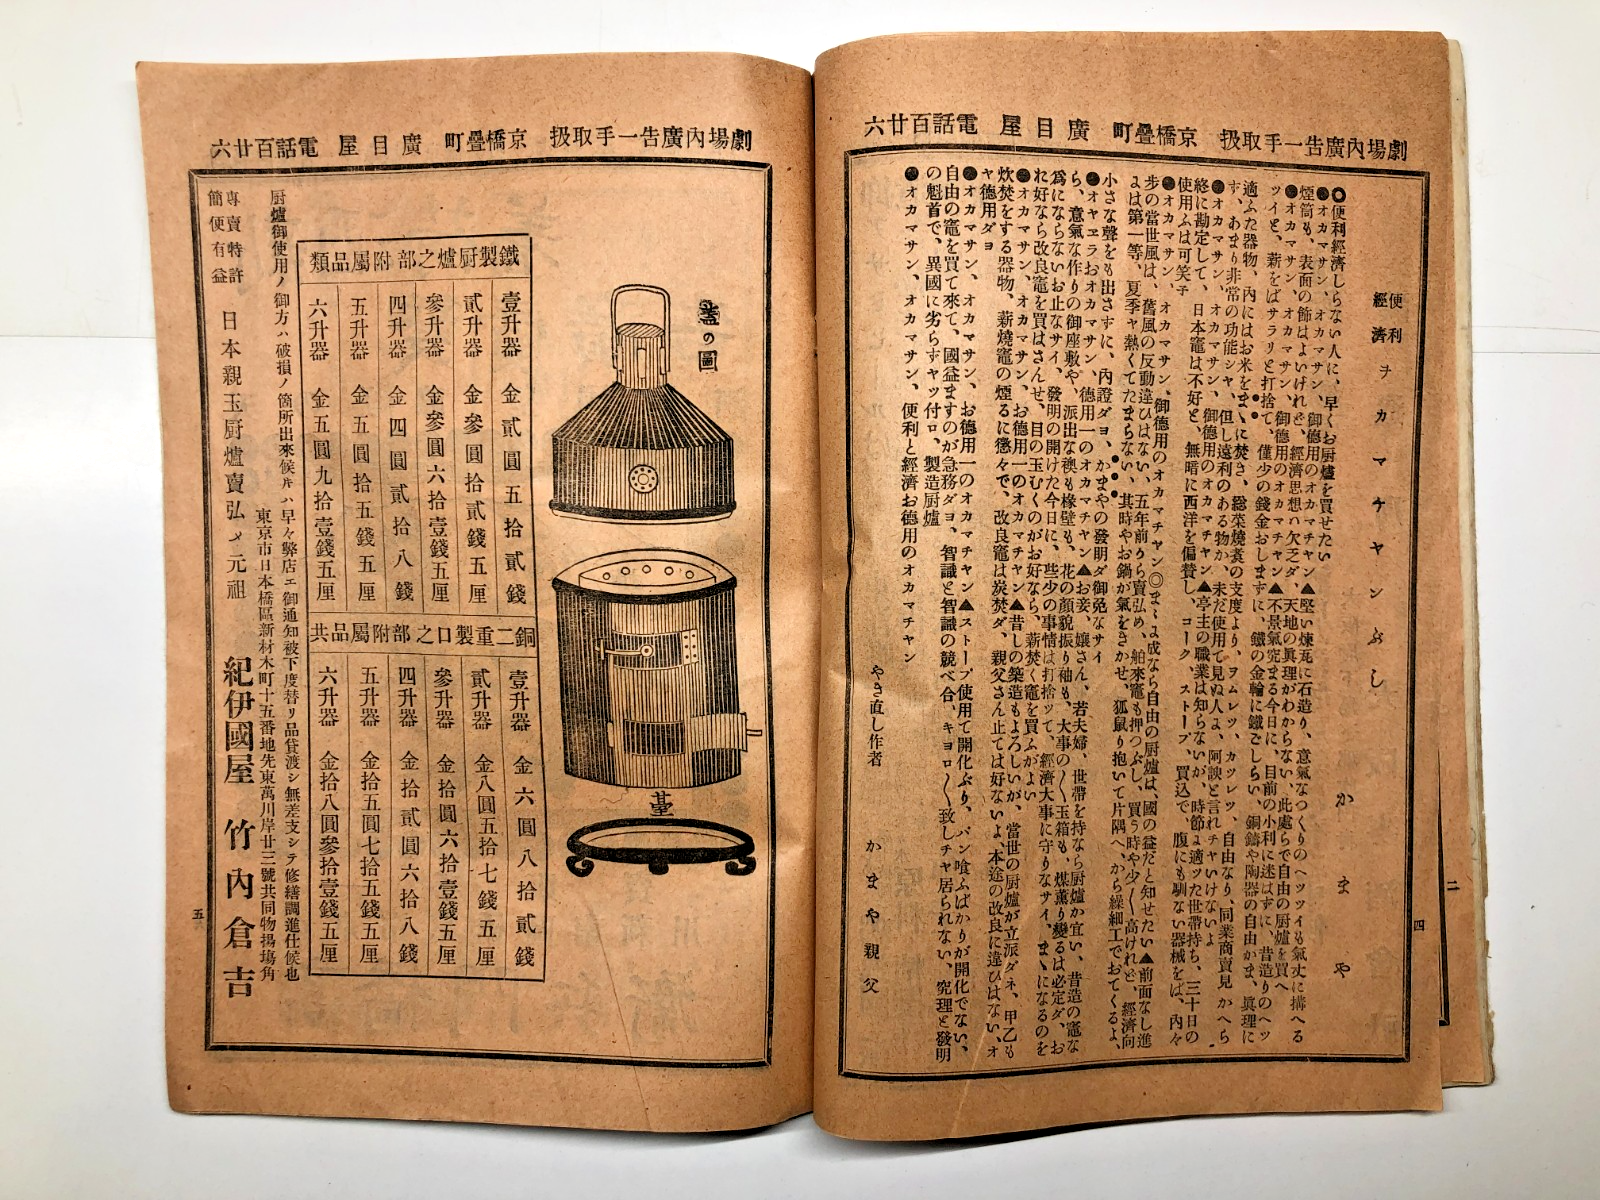 劇場內廣告一手取扱 京橋疊町 廣目屋 電話百廿六
便利
經濟
ヲカマチヤンぶし
かまや
◎便利經濟しらない人に、早くお厨爐を買せたい
●オカマサン、オカマサン、御德用のオカマチヤン▲堅い煉瓦に石造り、意氣なつくりのヘツツイも氣丈に搆へる
煙筒も、表面の飾はよいけれど、經濟思想ハ欠乏ダ、天地の眞理がわからない、此處らで自由の厨爐を買へ
●オカマサン、オカマサン、御德用のオカマチヤン▲不景氣究まる今日に、目前の小利に迷はずに、昔造りのヘツ
ツイと、薪をばサラリと打捨て、僅少の錢金おしまずに、鐵の金輪に鐵ごしらい、銅鑄や陶器の自由かま、眞理に
適ふた器物、內にはお米をまゝに焚き、總菜燒煮の支度より、ヲムレツ、カツレツ、自由なり、同業商賣見かへら
ず、あまり非常の功能シヤ、但し遠利のある物か、未だ使用て見ぬ人よ、阿諛と言れチヤいけないよ
●オカマサン、オカマサン、御德用のオカマチヤン▲亭主の職業は知らないが、時節よ適ツた世帶持ち、三十日の
終に勘定して、日本竈は不好と、無暗に西洋を偏賛し、コーク、ストーブ、買込で、腹にも馴ない器械をば、內々
使用ふは可笑子
●オカマサン、オカマサン、御德用のオカマチヤン◎まゝよ成なら自由の厨爐は、國の益だと知せたい▲前面なし進
歩の當世風は、舊風の反動違ひはない、五年前ゟ賣弘め、舶來竈も押つぶし、買う時や少〱高けれど、經濟向
よは第一等、夏季ャ熱くてたまらない、其時やお鍋が氣をきかせ、狐鼠り抱いて片隅へ、から繰細工でおてくるよ、
小さな聲をも出さずに、內證ダヨ、かまやの發明ダ御免なサイ
●オヤヱラおオカマサン、德用一のオカマチヤン▲お妾、孃さん、若夫婦、世帶を持なら厨爐か宜い、昔造の竈な
ら、意氣な作りの御座敷や、派出な襖も椽壁も、花の顏貌振り袖も、大事の〱玉箱も、煤薰り變るは必定ダ、お
爲にならないお止なサイ、發明の開けた今日に、些少の事情は打捨ツて、經濟大事に守りなサイ、まゝになるのを
れ好なら改良竈を買はさんせ、目の玉むくのがお好なら、薪焚く竈を買ふがよい
●オカマサン、オカマサン、お德用一のオカマチヤン▲昔しの築造もよろしいが、當世の厨爐が立派ダネ、甲乙も
炊焚をする器物、薪燒竈の煙るに懲々で、改良竈は炭焚ダ、親父さん止ては好ないよ、本途の改良に違ひはない、オ
ヤ德用ダヨ
●オカマサン、オカマサン、お德用一のオカマチヤン▲ストーブ使用て開化ぶり、パン喰ふばかりが開化でない、
自由の竈を買て來て、國益ますのが急務ダヨ、智識と智識の競べ合、キヨロ〱致しチャ居られない、究理と發明
の魁首で、異國に劣らずヤツ付ロ、製造厨爐
●オカマサン、オカマサン、便利と經濟お德用のオカマチヤン
やき直し作者 かまや親父
四
二
劇場內廣告一手取扱 京橋疊町 廣目屋 電話百廿六
蓋の圖
臺
鐵製厨爐之部附屬品類
壹升器 金貳圓五拾貳錢
貳升器 金參圓拾貳錢五厘
參升器 金參圓六拾壹錢五厘
四升器 金四圓貳拾八錢
五升器 金五圓拾五錢五厘
六升器 金五圓九拾壹錢五厘
銅二重製口之部附屬品共
壹升器 金六圓八拾貳錢
貳升器 金八圓五拾七錢五厘
參升器 金拾圓六拾壹錢五厘
四升器 金拾貳圓六拾八錢
五升器 金拾五圓七拾五錢五厘
六升器 金拾八圓參拾壹錢五厘
厨爐御使用ノ御方ハ破損ノ箇所出來候片ハ早々弊店エ御通知被下度替リ品貸渡シ無差支シテ修繕調進仕候也
東京市日本橋區新材木町十五番地先東萬川岸廿三號共同物揚場角
專賣特許
簡便有益
日本親玉厨爐賣弘メ元祖 紀伊國屋 竹內倉吉
五